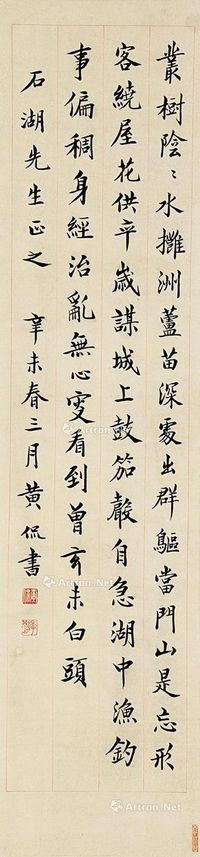 叢樹陰〻水攤洲蘆苗深處出群鷗當門山是忘形
客繞屋花供卒歲謀城上鼓笳聲自急湖中漁釣
事偏稠身經治亂無心變看到曾玄未白頭
石湖先生正之　辛未春三月黃侃書
Artron.Net
Artron.Net
Artron.Net